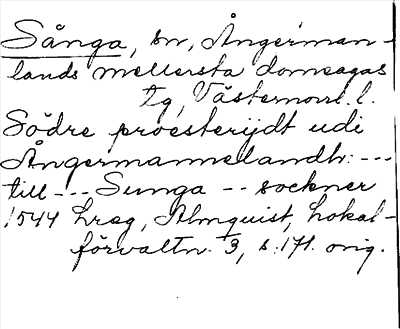 Sånga, sn, Ångerman-
lands mellersta domsagas
tg, Västernorrl. l.
Södre proesterijdt udi
Ångermannelandh: ---
till --- Sunga -- sockner
1544 hrag, Almquist, Lokal-
förvaltn. 3, s. 171. orig.